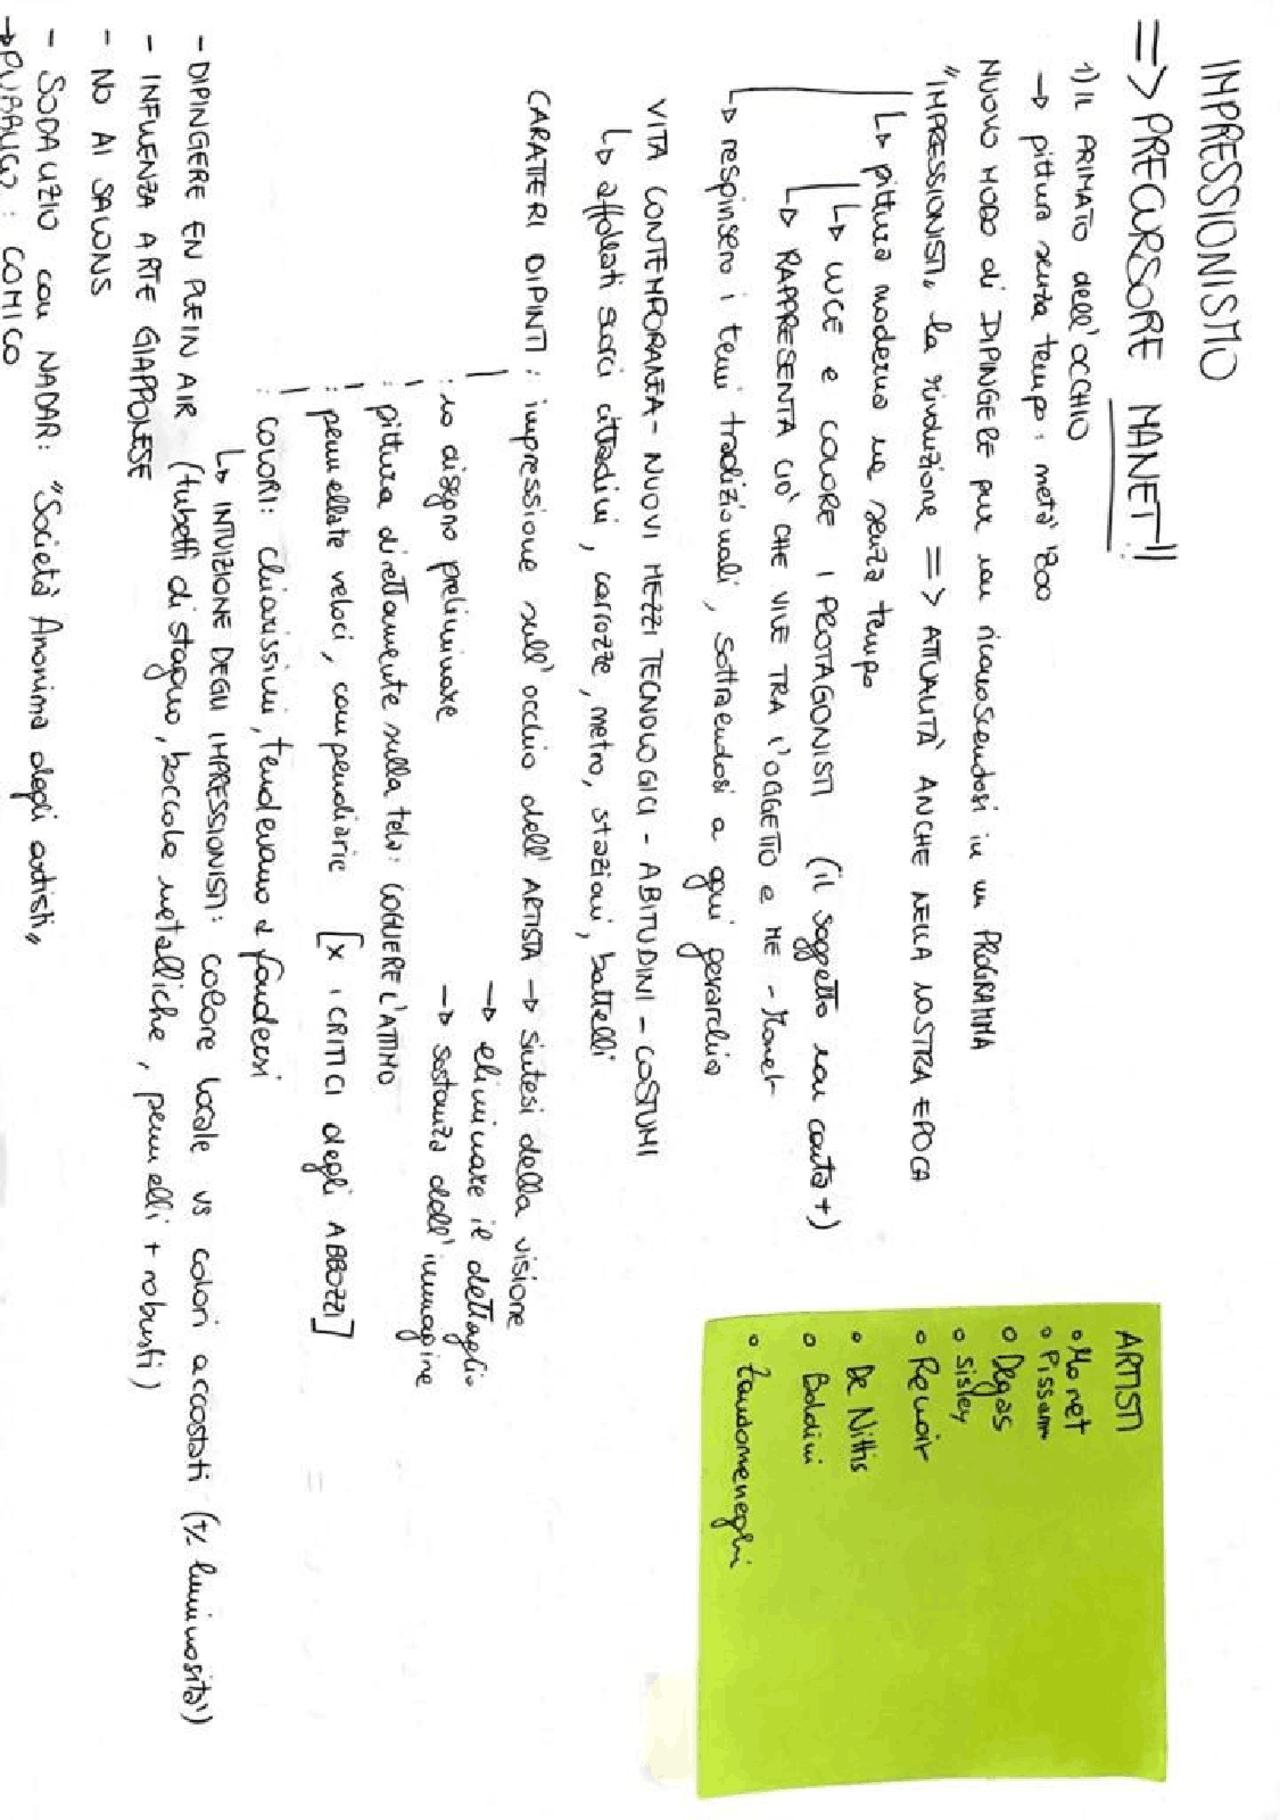 IMPRESSIONISMO
=> PRECURSORE MANET!!
1) IL PRIMATO dell'OCCHIO
→ pittura senza tempo: metà '800
NUOVO MODO di DIPINGERE pur non riconoscendosi in un PROGRAMMA
"IMPRESSIONISTI" la rivoluzione => ATTUALITÀ ANCHE NELLA NOSTRA EPOCA
↳ pittura moderna ma senza tempo
↳ LUCE e COLORE I PROTAGONISTI (il soggetto non conta +)
↳ RAPPRESENTA CIÒ CHE VIVE TRA L'OGGETTO e ME - Monet
↳ respinsero i temi tradizionali, sottraendosi a ogni gerarchia
VITA CONTEMPORANEA - NUOVI MEZZI TECNOLOGICI - ABITUDINI - COSTUMI
↳ affollati scorci cittadini, carrozze, metro, stazioni, battelli
CARATTERI DIPINTI: impressione sull'occhio dell'ARTISTA → sintesi della visione
→ eliminare il dettaglio
: no disegno preliminare → sostanza dell'immagine
: pittura direttamente sulla tela: COGLIERE L'ATTIMO
: pennellate veloci, compendiarie [x i CRITICI degli ABBOZZI]
: COLORI: chiarissimi, tendevano a fondersi
↳ INTUIZIONE DEGLI IMPRESSIONISTI: colore locale vs colori accostati (+ luminosità)
- DIPINGERE EN PLEIN AIR (tubetti di stagno, boccole metalliche, pennelli + robusti)
- INFLUENZA ARTE GIAPPONESE
- NO AI SALONS
- SODALIZIO con NADAR: "Società Anonima degli artisti"
→ PUBBLICO: COMICO
ARTISTI
• Monet
• Pissarro
• Degas
• Sisley
• Renoir
• De Nittis
• Boldini
• Zandomeneghi